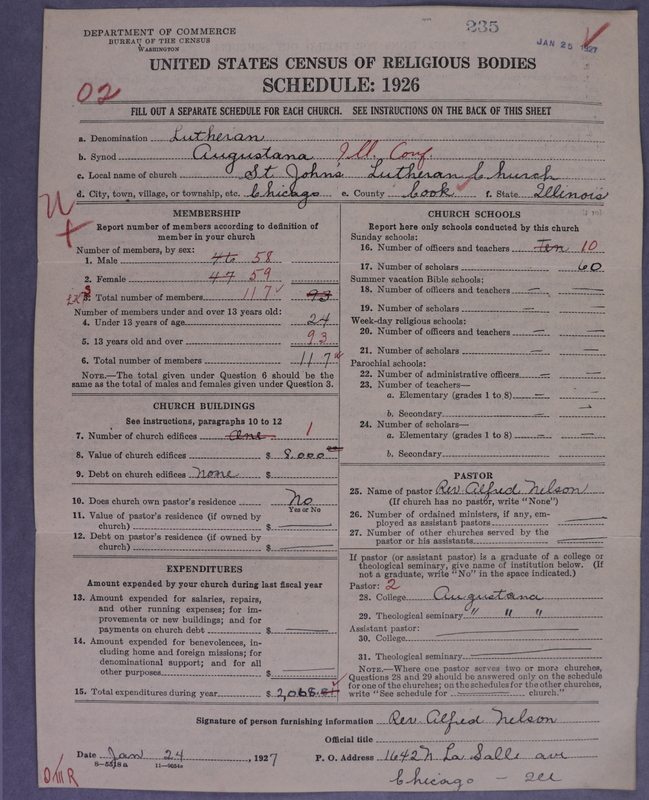 DEPARTMENT OF COMMERCE
BUREAU OF THE CENSUS
WASHINGTON
235
JAN 25 1927
UNITED STATES CENSUS OF RELIGIOUS BODIES
SCHEDULE: 1926
02
FILL OUT A SEPARATE SCHEDULE FOR EACH CHURCH. SEE INSTRUCTIONS ON THE BACK OF THIS SHEET
a. Denomination Lutheran
b. Synod Augustana Ill. Conf.
c. Local name of church St Johns Lutheran Church
d. City, town, village, or township, etc. Chicago e. County Cook f. State Illinois
MEMBERSHIP
Report number of members according to definition of
member in your church
Number of members, by sex:
1. Male 46 58
2. Female 47 59
3. Total number of members 117 93
Number of members under and over 13 years old:
4. Under 13 years of age 24
5. 13 years old and over 93
6. Total number of members 117
NOTE.—The total given under Question 6 should be the
same as the total of males and females given under Question 3.
CHURCH BUILDINGS
See instructions, paragraphs 10 to 12
7. Number of church edifices one 1
8. Value of church edifices $ 8.000
9. Debt on church edifices none $
10. Does church own pastor's residence No
Yes or No
11. Value of pastor's residence (if owned by
church) $
12. Debt on pastor's residence (if owned by
church) $
EXPENDITURES
Amount expended by your church during last fiscal year
13. Amount expended for salaries, repairs,
and other running expenses; for im-
provements or new buildings; and for
payments on church debt $
14. Amount expended for benevolences, in-
cluding home and foreign missions; for
denominational support; and for all
other purposes $
15. Total expenditures during year $ 2,068.81
CHURCH SCHOOLS
Report here only schools conducted by this church
Sunday schools:
16. Number of officers and teachers Ten 10
17. Number of scholars 60
Summer vacation Bible schools:
18. Number of officers and teachers — —
19. Number of scholars — —
Week-day religious schools:
20. Number of officers and teachers — —
21. Number of scholars — —
Parochial schools:
22. Number of administrative officers — —
23. Number of teachers—
a. Elementary (grades 1 to 8) — —
b. Secondary — —
24. Number of scholars—
a. Elementary (grades 1 to 8) — —
b. Secondary
PASTOR
25. Name of pastor Rev Alfred Nelson
(If church has no pastor, write "None")
26. Number of ordained ministers, if any, em-
ployed as assistant pastors
27. Number of other churches served by the
pastor or his assistants
If pastor (or assistant pastor) is a graduate of a college or
theological seminary, give name of institution below. (If
not a graduate, write "No" in the space indicated.)
Pastor: 2
28. College Augustana
29. Theological seminary " " "
Assistant pastor:
30. College
31. Theological seminary
NOTE.—Where one pastor serves two or more churches,
Questions 28 and 29 should be answered only on the schedule
for one of the churches; on the schedules for the other churches,
write "See schedule for church."
Signature of person furnishing information Rev Alfred Nelson
Official title
Date Jan 24, 1927 P. O. Address 1642 N La Salle ave
8—5518a 11—9034a
Chicago — Ill
DMR